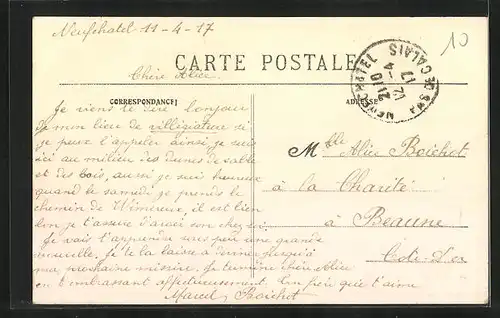 Neufchatel 11-4-17
10
CARTE POSTALE
Chère Alice
NEUFCHATEL PAS DE CALAIS
21 10
12 - 4
17
CORRESPONDANCE
ADRESSE
Je viens te dire bonjour
de mon lieu de villégiature si
je peux l'appeler ainsi, je suis
ici au milieu des dunes de sable
et des bois, aussi je suis heureux
quand le samedi je prends le
chemin de Wimereux, il est bien
bon je t'assure d'avoir son chez soi
Je vais t'apprendre sous peu une grande
nouvelle, je te la laisse à deviner jusqu'à
ma prochaine missive. Je termine chère Alice
en t'embrassant affectueusement. Ton frère qui t'aime
Marcel Boichot
Mlle Alice Boichot
à la Charité
à Beaune
Côte-d'Or